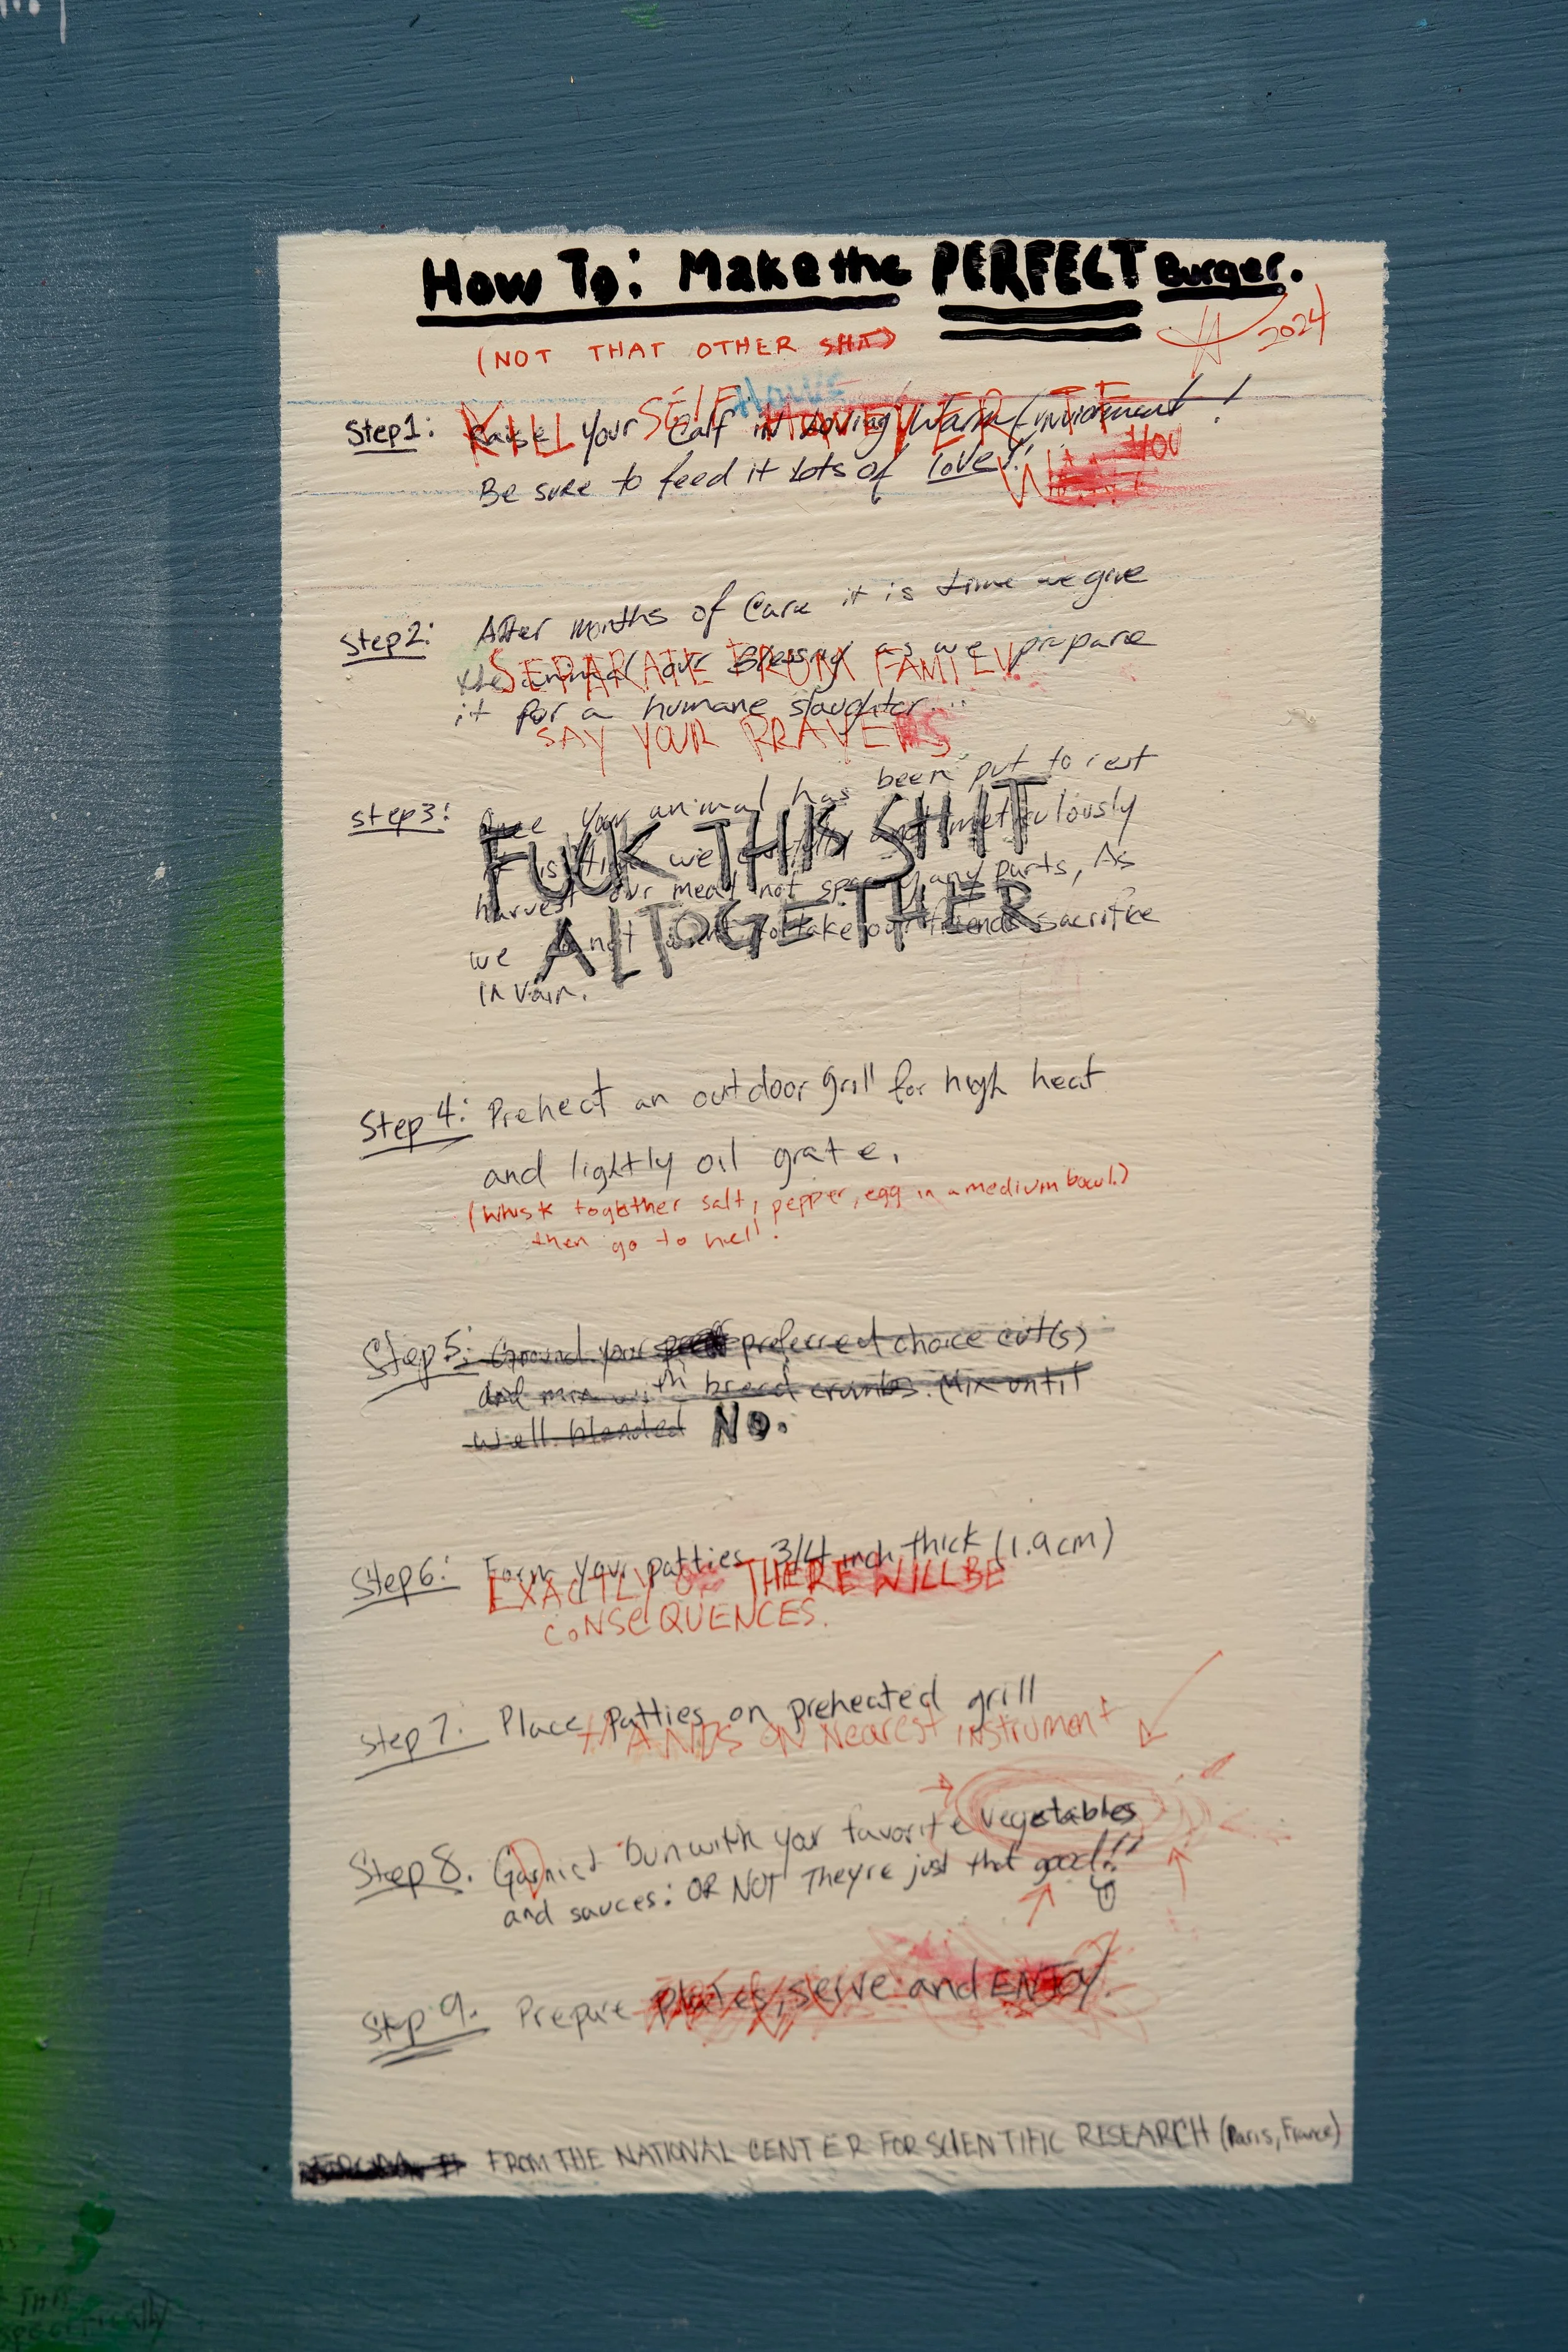 How To: Make the PERFECT Burger.
(NOT THAT OTHER SHIT)
2024
Step1: Raise your Calf in Loving Warm Enviorment!
KILL SELF HOWEVER IF YOU
Be sure to feed it lots of love!!
Step2: After months of Care it is time we give
the animal our Blessing as we prepare
SEPARATE FROM FAMILY.
it for a humane slaughter...
SAY YOUR PRAYERS
step3: Once your animal has been put to rest
FUCK THIS SHIT
it is time we and meticulously
harvest our meat not sparing any parts, As
ALTOGETHER
we do not want to take our friends sacrifice
in vain.
Step 4: Preheat an outdoor grill for high heat
and lightly oil grate.
(Whisk together salt, pepper, egg in a medium bowl.)
then go to hell!
Step5: Ground your preferred choice cut(s)
and mix with bread crumbs. Mix until
well blended No.
Step6: Form your patties 3/4 inch thick (1.9cm)
EXACTLY OR THERE WILL BE
CONSEQUENCES.
Step 7: Place Patties on preheated grill
HANDS ON Nearest instrument
Step 8. Bun with your favorite vegetables
and sauces: OR NOT They're just that good!!
Step 9. Prepare Plates, serve and ENJOY.
FROM THE NATIONAL CENTER FOR SCIENTIFIC RESEARCH (Paris, France)